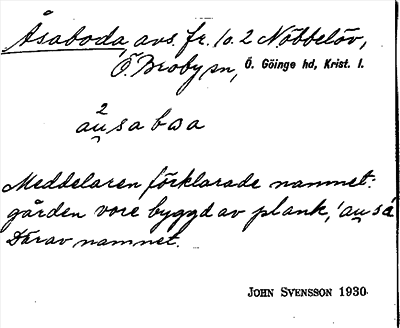 Åsaboda, avs. fr. 1o. 2 Nöbbelöv,
Ö. Broby sn, Ö. Göinge hd, Krist. l.
2
au̯sabωa
Meddelaren förklarade namnet:
gården vore byggd av plank, 'au̯så
Därav namnet.
JOHN SVENSSON 1930.